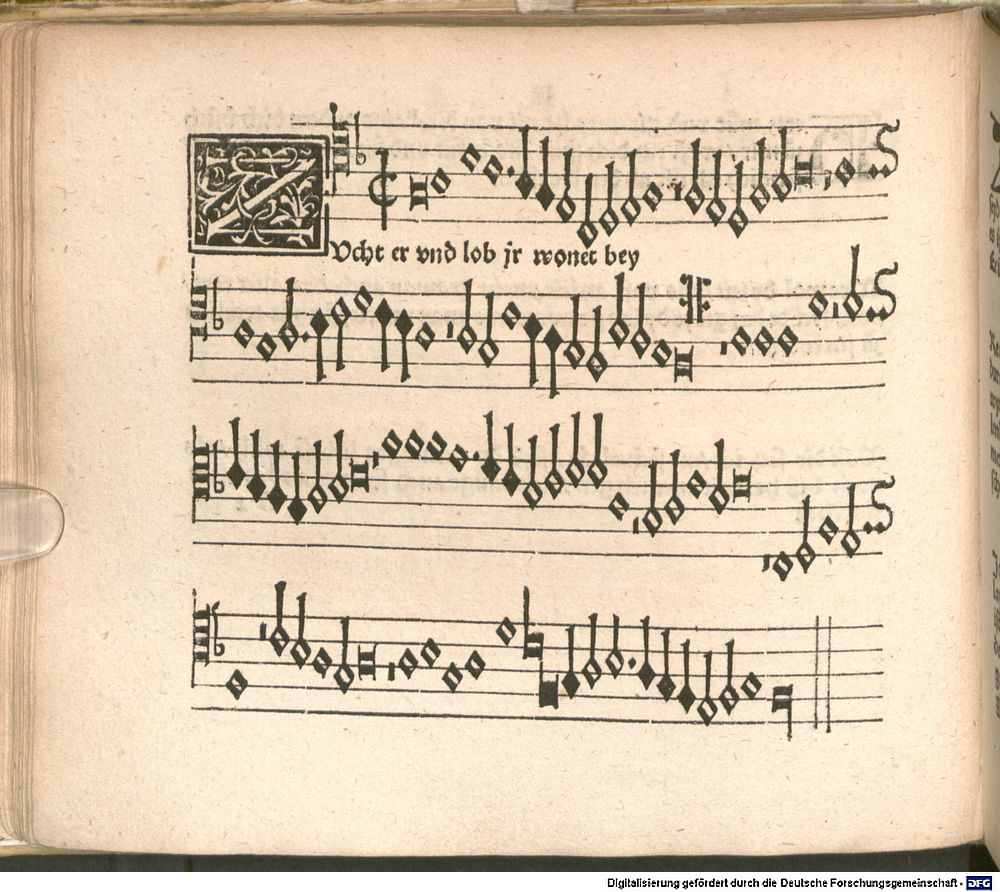 Zucht er vnd lob jr wonet bey
Digitalisierung gefördert durch die Deutsche Forschungsgemeinschaft - DFG